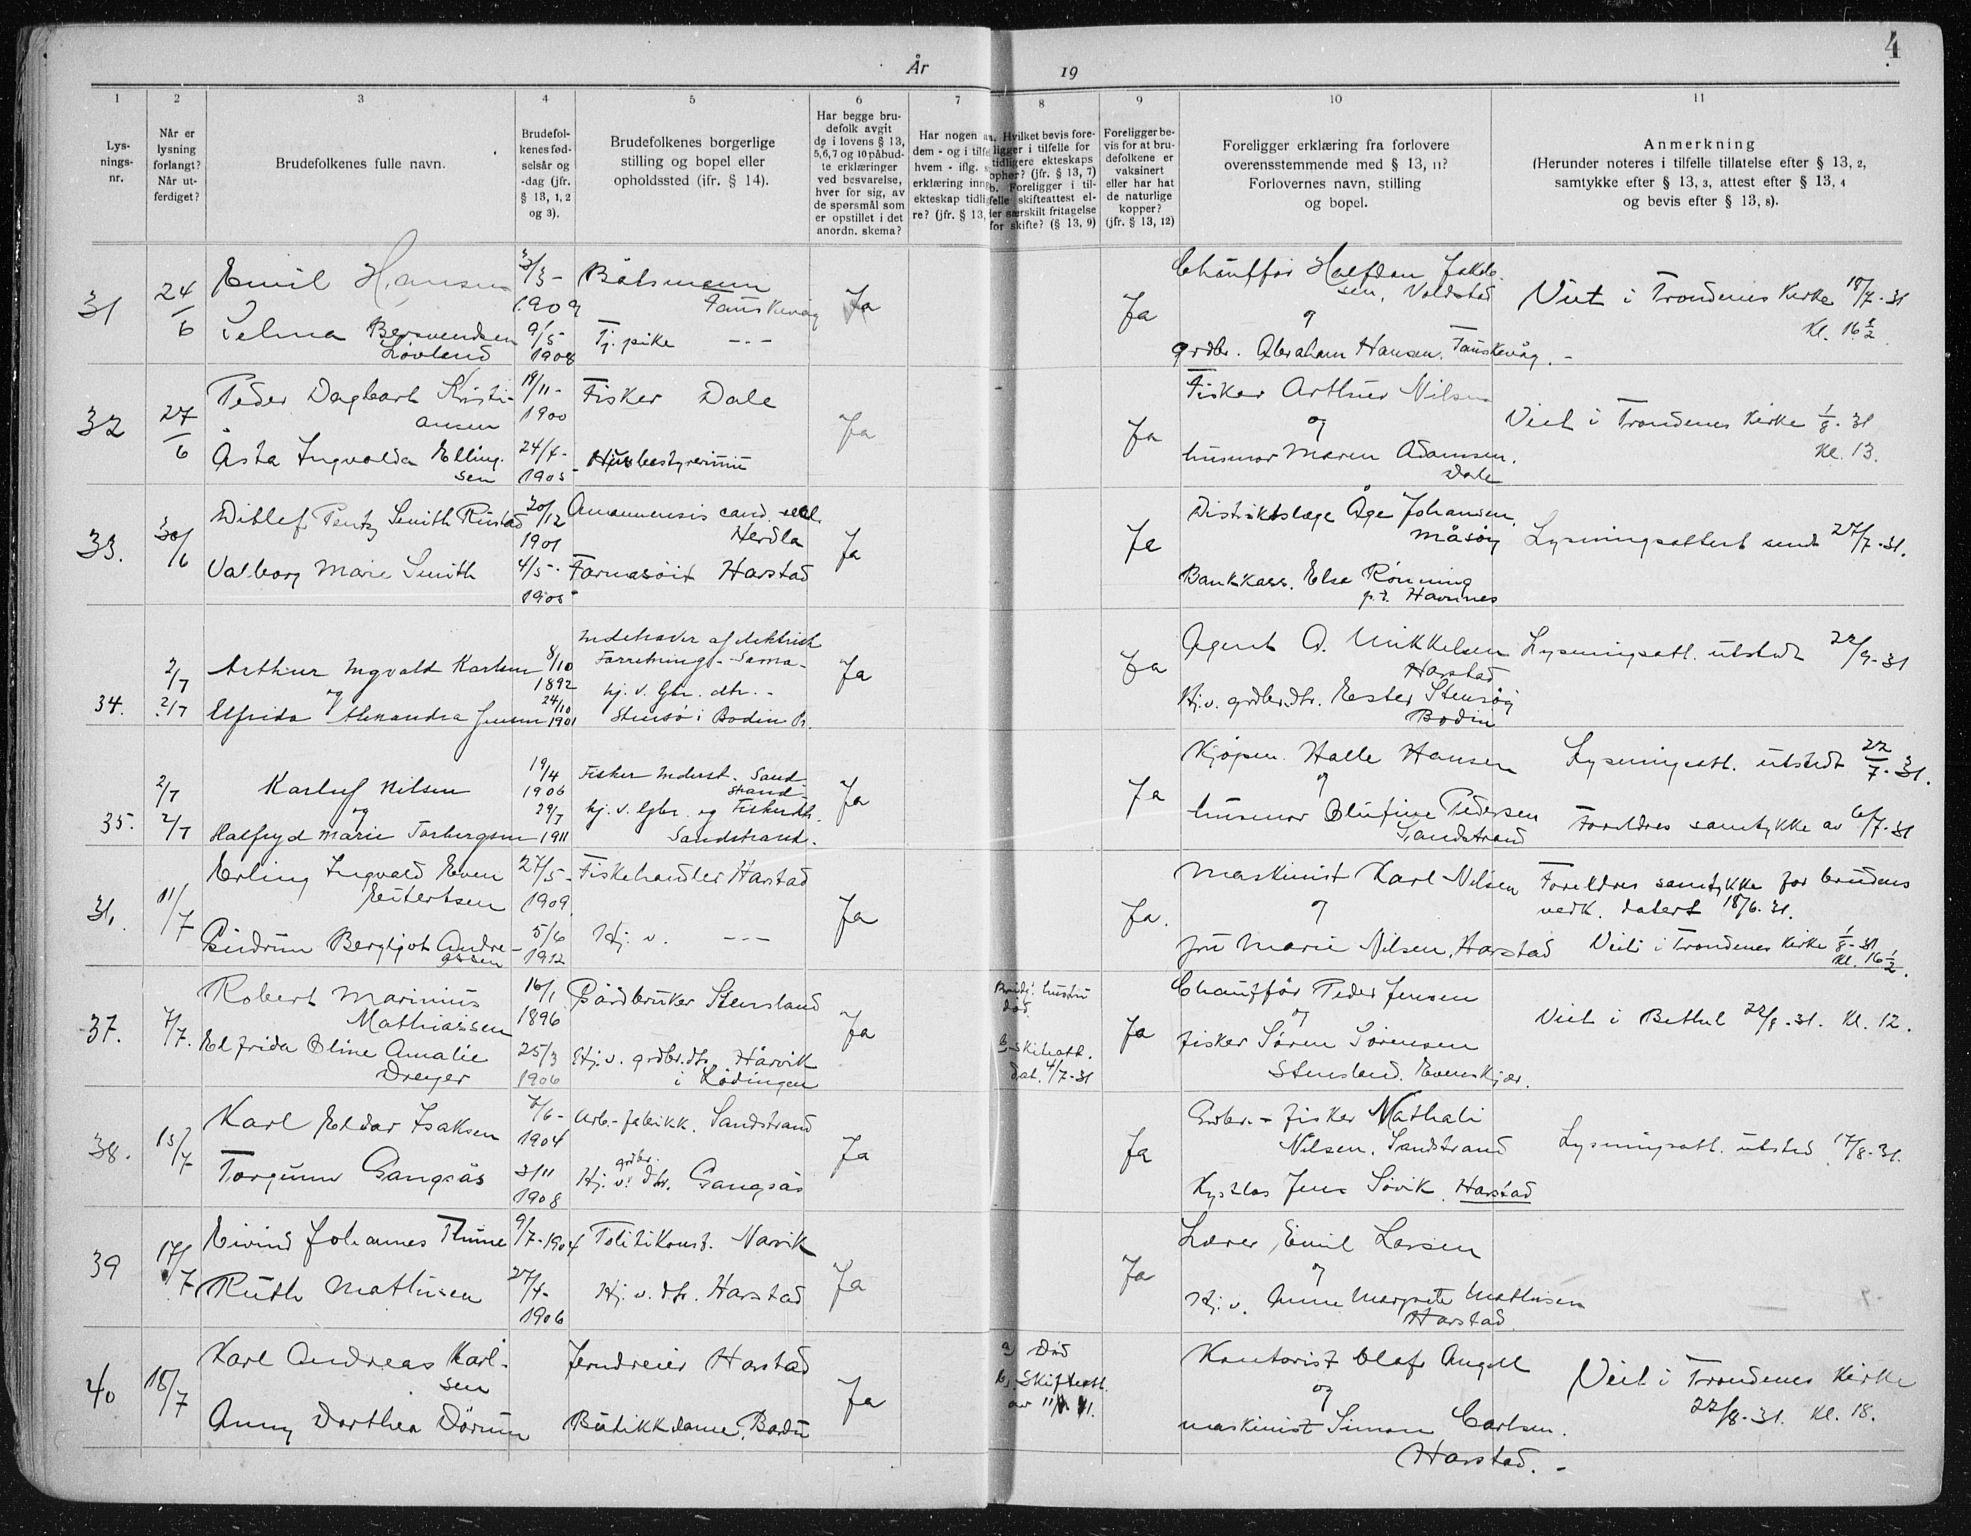 År 19
4
1 2 3 4 5 6 7 8 9 10 11
Lys-
nings-
nr.
Når er
lysning
forlangt?
Når ut-
ferdiget?
Brudefolkenes fulle navn.
Brudefol-
kenes fød-
selsår og
-dag (jfr.
§ 13, 1, 2
og 3).
Brudefolkenes borgerlige
stilling og bopel eller
opholdssted (ifr. § 14).
Har begge bru-
defolk avgit
de i lovens § 13,
5,6,7 og 10 påbud-
te erklæringer
ved besvarelse,
hver for sig, av
de spørsmål som
er opstillet i det
anordn. skema?
Har nogen a
dem - og i tilfe
hvem - iflg.
erklæring inng
ekteskap tidlig
re? (jfr. § 13,
a. Hvilket bevis fore-
ligger i tilfelle for
tidligere ekteskaps
ophør? (jfr. § 13, 7)
b. Foreligger i til-
felle skifteattest el-
ler særskilt fritagelse
for skifte? (§ 13, 9)
Foreligger be-
vis for at bru-
defolkene er
vaksinert
eller har hat
de naturlige
kopper?
(jfr. § 13, 12)
Foreligger erklæring fra forlovere
overensstemmende med § 13, 11?
Forlovernes navn, stilling
og bopel.
Anmerkning
(Herunder noteres i tilfelle tillatelse efter § 13, 2,
samtykke efter § 13, 3, attest efter § 13, 4
og bevis efter § 13, 8).
31 24/6
Emil Hansen
Selma Bersvendsen
Løvland
/3-
1909
9/5-
1908
Båtsmann
Fauskevåg
Tj. pike -"-
Ja
Ja
Chauffør Halfdan Jakob-
sen, Voldstad
og
grdbr. Abraham Hansen, Fauskevåg.
Viet i Trondenes Kirke 18/7-31
Kl. 16 1/2
32 27/6
Peder Dagbart Kristi-
ansen
Åsta Ingvalda Elling-
sen
19/11-
1900
24/4-
1905
Fisker Dale
Husbestyrerinne
Ja
Ja
Fisker Arthur Nilsen
og
husmor Maren Adamsen.
Dale
Viet i Trondenes Kirke 1/8-31
Kl. 13.
33. 30/6
Ditlef Pentz Smith Rustad
Valborg Marie Smith
20/12
1901
4/5-
1905
Amanuensis cand.
Herdla
Farmasøit Harstad
Ja
Ja
Distriktslæge Åge Johansen,
Måsøy
Bankkass. Elsa Rønning
p.t. Havnnes
Lysningsattest sendt 27/7-31.
34. 2/7
2/7
Arthur Ingvald Karlsen
og
Elfrida Alexandra Jensen
8/10
1892
24/10
1901
Indehaver af elektrisk
Forretning - Sama-
hj. v. gbr. dtr. -
Stensø i Bodin Pr.
Ja
Ja
Agent A. Mikkelsen
Harstad
Hj. v. grdbr.dtr. Ester Stensøy
Bodin
Lysningsatt. utstedt 22/9-31
35. 2/7
2/7
Karluf Nilsen
og
Halfryd Marie Torbergsen
19/4
1906
29/7
1911
Fisker Inderst. Sand
strand
hj. v. gbr. og Fiskerdtr.
Sandstrand.
Ja
Ja
Kjøpm. Halle Hansen
og
husmor Olufine Pedersen
Sandstrand
Lysningsatt. utstedt 22/7-31.
Foreldres samtykke av 6/7-31
31. 11/7
Erling Ingvald Even
Eilertsen
Gudrun Bergljot Andre-
assen
27/5-
1909.
5/6
1912
Fiskehandler Harstad
Hj. v. -"-
Ja
Ja.
Maskinist Karl Nilsen
og
fru Marie Nilsen, Harstad
Foreldres samtykke for brudens
vedk. datert 18/6.31.
Viet i Trondenes Kirke 1/8-31
Kl. 16 1/2.
37. 7/7.
Robert Marinius
Mathiassen
Elfrida Oline Amalie
Dreyer
16/1
1896
25/3
1906
Gårdbruker Stensland
Hj. v. grdbr.dtr. Hårvik
i Lødingen
Ja
Brudg. hustru
død
b. Skifteatt.
dat. 4/7-31
Ja
Chauffør Peder Jensen
og
fisker Søren Sørensen
Stensland. Evenskjær.
Viet i Bethel 22/8-31. Kl. 12.
38. 13/7
Karl Eldar Isaksen
Torgunn Gangsås
7/6-
1904
3/11
1908
Arb.- fabrikk. Sandstrand
grdbr.
Hj. v. dtr. Gangsås
Ja
Ja
Grdbr. - fisker Mathali
Nilsen, Sandstrand
Kystlos Jens Søvik, Harstad
Lysningsatt. utsted. 17/8-31.
39 17/7
Eivind Johannes Thune
Ruth Mathisen
9/7-1904
27/4-
1906
Politikonst. Narvik
Hj. v. dtr. Harstad
Ja
Ja
Lærer, Emil Larsen
og
Hj. v. Anne Margrete Mathisen
Harstad
40 18/7
Karl Andreas Karl-
sen
Anny Dorthea Dørum
Jerndreier Harstad
Butikkdame, Bardu
Ja
a) Død
b. Skifteatt.
Kontorist Olafr Angell
og
maskinist Simon Carlsen.
Harstad. -
Viet i Trondenes Kirke
22/8-31. Kl. 18.